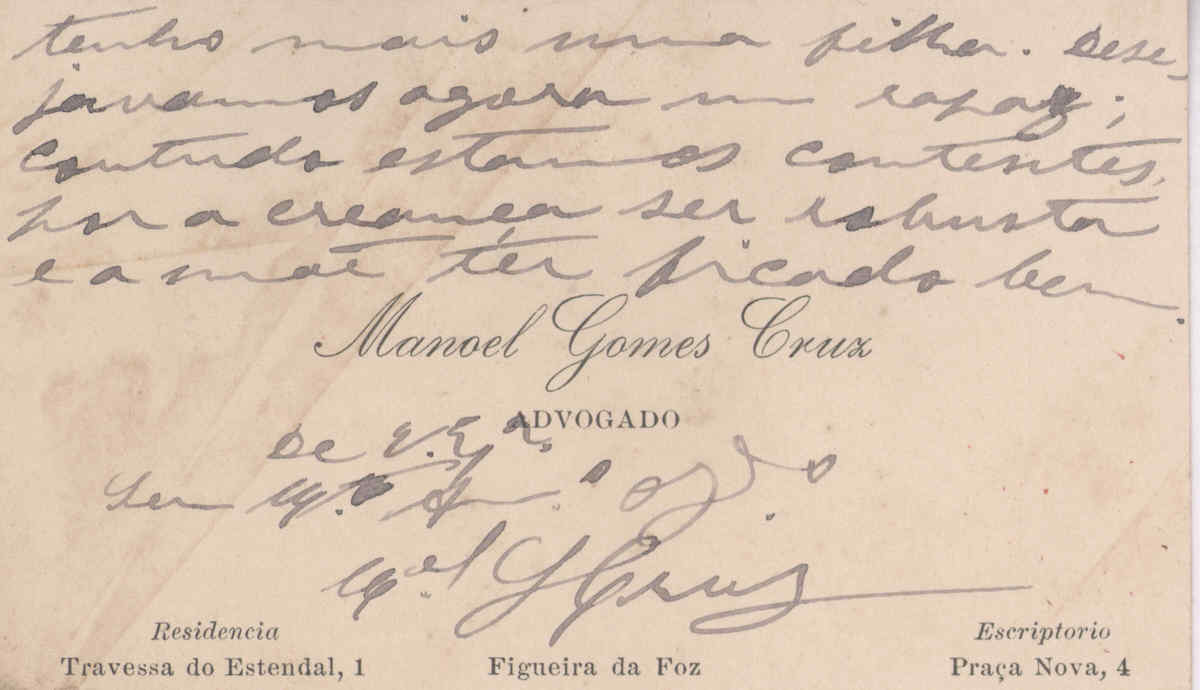 tenho mais uma filha. Dese-
javamos agora um rapaz;
contudo estamos contentes,
por a creança ser robusta
e a mãe têr ficado bem.
Manoel Gomes Cruz
ADVOGADO
De V. Ex.ª
Seu M.to Am.o
M.el G Cruz
Residencia
Travessa do Estendal, 1
Figueira da Foz
Escriptorio
Praça Nova, 4